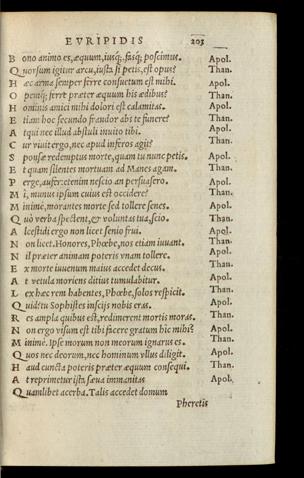 EVRIPIDIS 203
B ono animo es, æquum, iusq́;, fasq́; poscimus. Apol.
Q uorsum igitur arcu, iusta si petis, est opus? Than.
H æc arma semper ferre consuetum est mihi. Apol.
O pemq́; ferre præter æquum his ædibus? Than.
H ominis amici mihi dolori est calamitas. Apol.
E tiam hoc secundo fraudor abs te funere? Than.
A tqui nec illud abstuli inuito tibi. Apol.
C ur viuit ergo, nec apud inferos agit? Than.
S ponsæ redemptus morte, quam tu nunc petis. Apol.
E t quam silentes mortuam ad Manes agam. Than.
P erge, aufer: etenim nescio an persuasero. Apol.
M i, munus ipsum cuius est occidere? Than.
M inimè, morantes morte sed tollere senes. Apol.
Q uò verba spectent, & voluntas tua, scio. Than.
A lcestidi ergo non licet senio frui. Apol.
N on licet. Honores, Phœbe, nos etiam iuuant. Than.
N il præter animam poteris vnam tollere. Apol.
E x morte iuuenum maius accedet decus. Than.
A t vetula moriens ditius tumulabitur. Apol.
L ex hæc rem habentes, Phœbe, solos respicit. Than.
Q uid? tu Sophistes insciis nobis eras. Apol.
R es ampla quibus est, redimerent mortis moras. Than.
N on ergo visum est tibi facere gratum hic mihi? Apol.
M inimè. Ipse morum non meorum ignarus es. Than.
Q uos nec deorum, nec hominum vllus diligit. Apol.
H aud cuncta poteris præter æquum consequi. Than.
A t reprimetur ista sæua immanitas Apol.
Q uamlibet acerba. Talis accedet domum
Pheretis